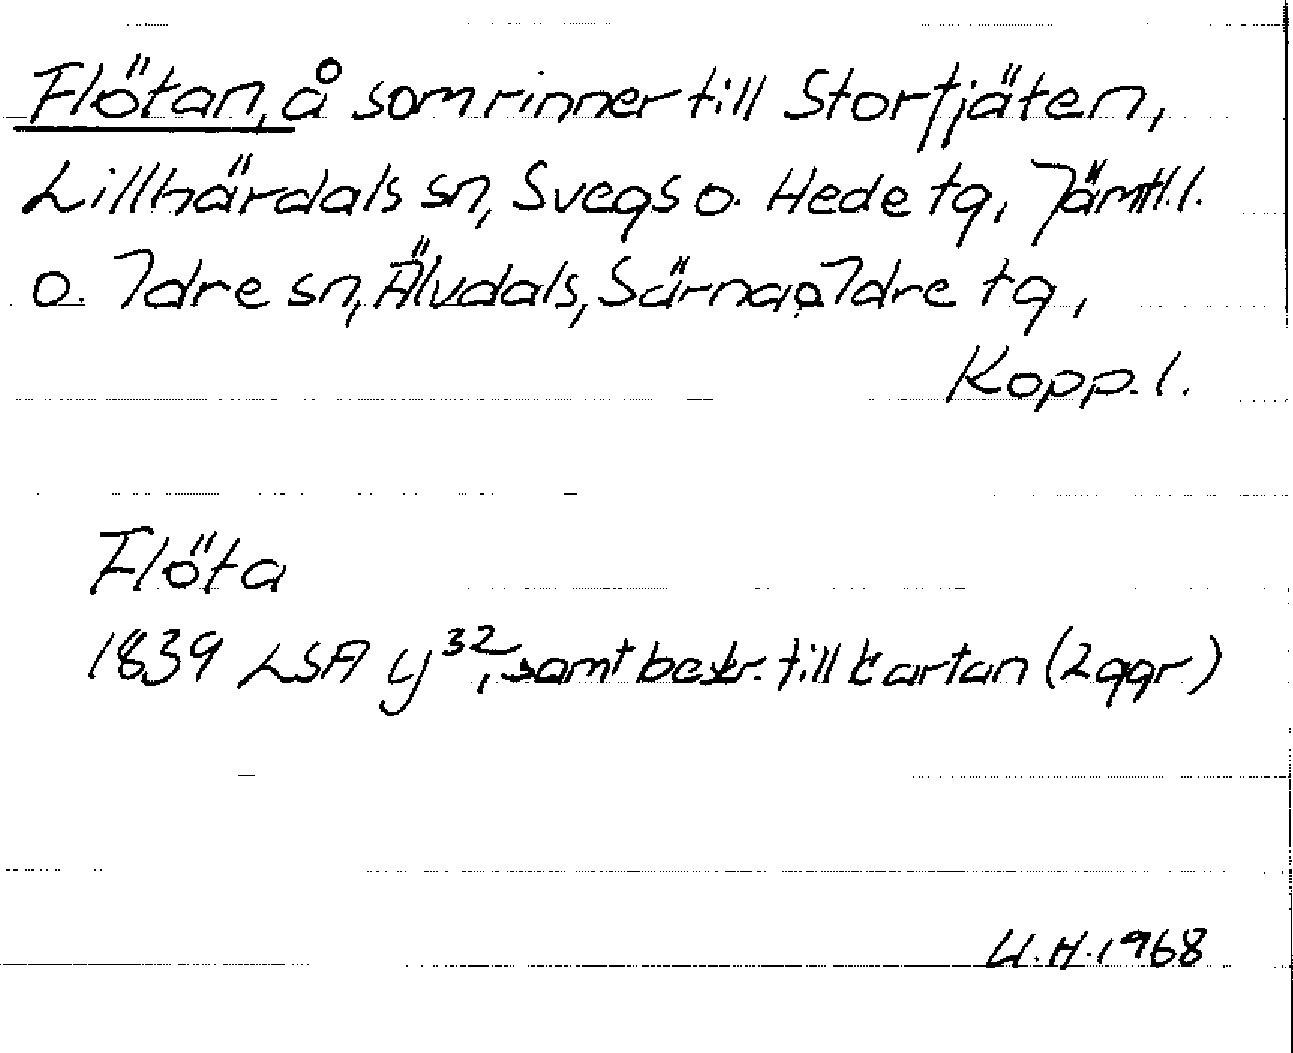 Flötan, å som rinner till Stortjäten,
Lillhärdals sn, Svegs o. Hede tg, Jämtl.l.
o. Idre sn, Älvdals, Särna o Idre tg,
Kopp. l.
Flöta
1839 LSA y³², samt beskr. till kartan (2 ggr)
U.H. 1968